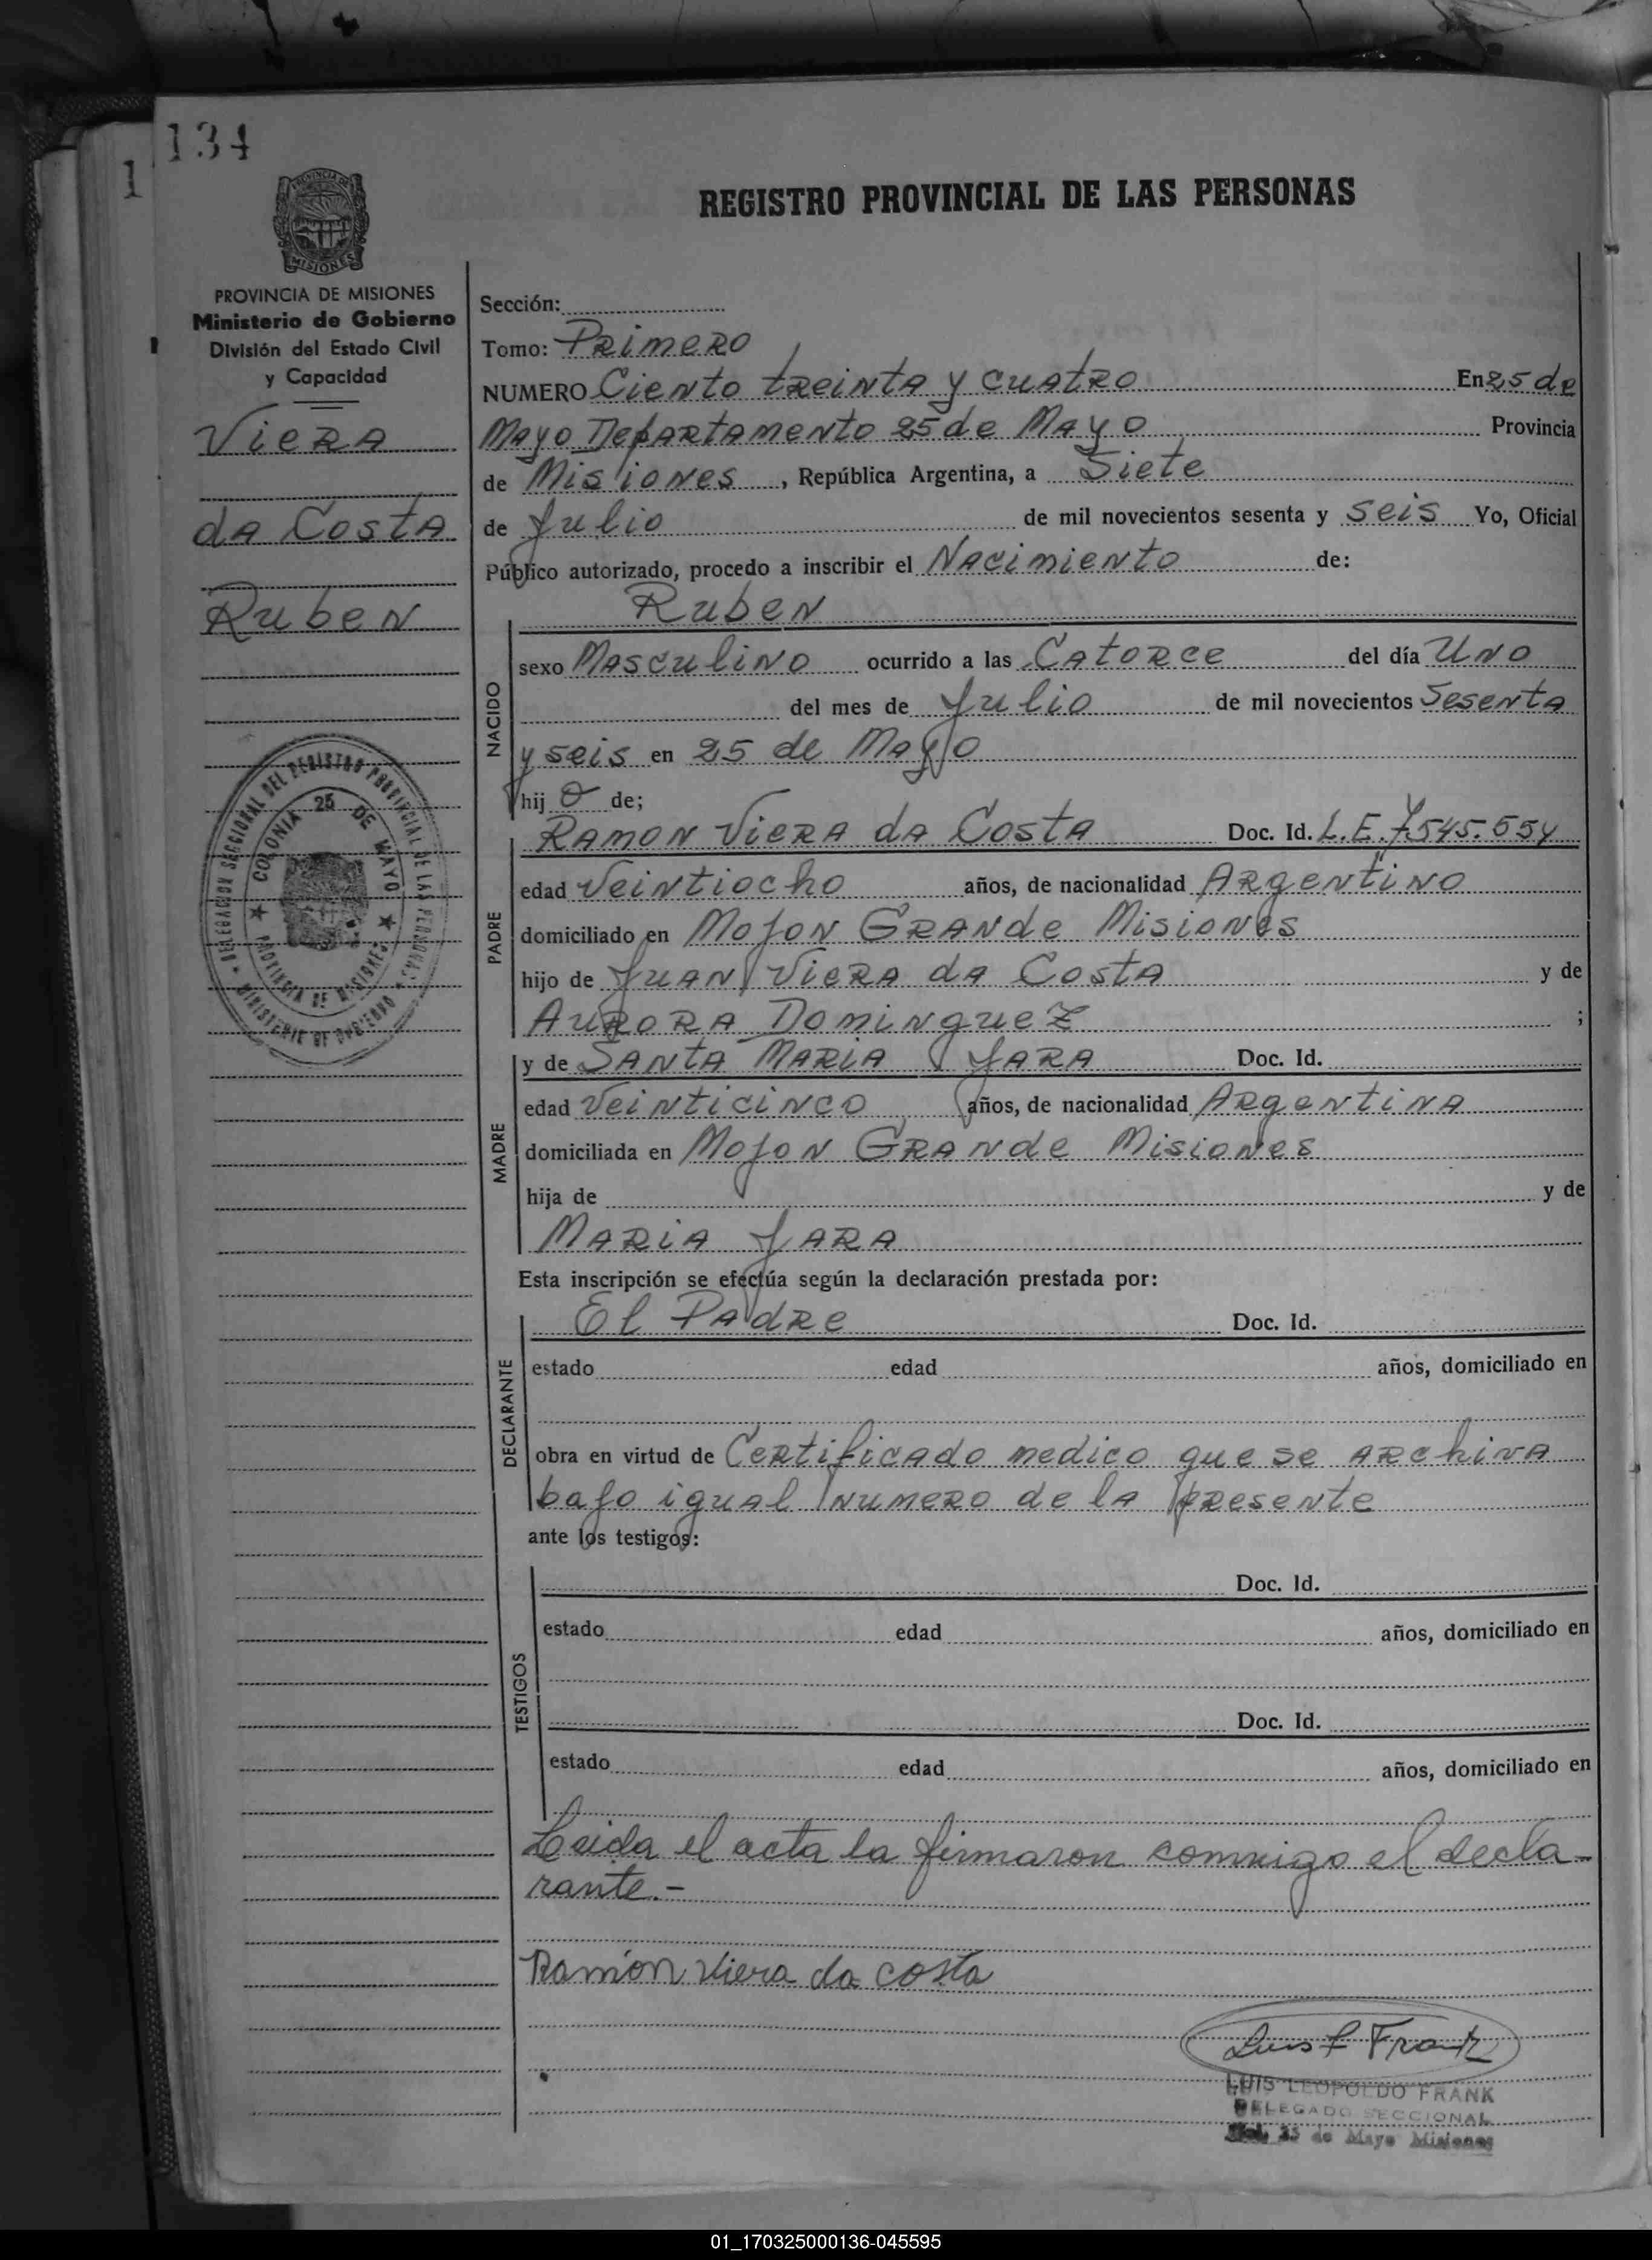 134
1
PROVINCIA DE
MISIONES
REGISTRO PROVINCIAL DE LAS PERSONAS
PROVINCIA DE MISIONES
Ministerio de Gobierno
División del Estado Civil
y Capacidad
Viera
da Costa
Ruben
DELEGACION SECCIONAL DEL REGISTRO PROVINCIAL DE LAS PERSONAS
MINISTERIO DE GOBIERNO
COLONIA 25 DE MAYO
PROVINCIA DE MISIONES
Sección:
Tomo: Primero
NUMERO Ciento treinta y cuatro En 25 de
Mayo Departamento 25 de Mayo Provincia
de Misiones, República Argentina, a Siete
de Julio de mil novecientos sesenta y seis Yo, Oficial
Público autorizado, procedo a inscribir el Nacimiento de:
Ruben
NACIDO
sexo Masculino ocurrido a las Catorce del día Uno
del mes de Julio de mil novecientos Sesenta
y seis en 25 de Mayo
hij o de;
PADRE
Ramon Viera da Costa Doc. Id. L.E. 7.545.554
edad Veintiocho años, de nacionalidad Argentino
domiciliado en Mojon Grande Misiones
hijo de Juan Viera da Costa y de
Aurora Dominguez ;
MADRE
y de Santa Maria Jara Doc. Id.
edad Veinticinco años, de nacionalidad Argentina
domiciliada en Mojon Grande Misiones
hija de y de
Maria Jara
Esta inscripción se efectúa según la declaración prestada por:
DECLARANTE
El Padre Doc. Id.
estado edad años, domiciliado en
obra en virtud de Certificado medico que se archiva
bajo igual numero de la presente
ante los testigos:
TESTIGOS
Doc. Id.
estado edad años, domiciliado en
Doc. Id.
estado edad años, domiciliado en
Leida el acta la firmaron conmigo el decla-
rante.-
Ramón Viera da costa
Luis L Frank
LUIS LEOPOLDO FRANK
DELEGADO SECCIONAL
25 de Mayo Misiones
01_170325000136-045595